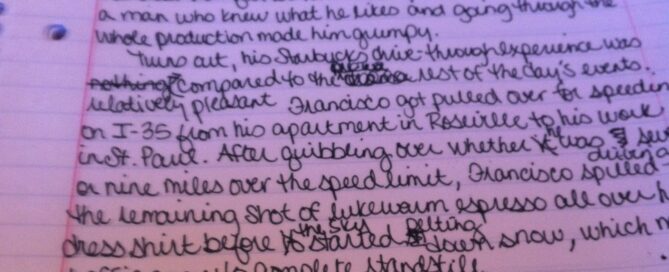 a man who knew what he likes and going through the
whole production made him grumpy.
Turns out, his Starbucks drive-through experience was
nothing compared to the drama rest of the day's events.
relatively pleasant Francisco got pulled over for speeding
on I-35 from his apartment in Roseville to his work
in St. Paul. After quibbling over whether he was
driving
or nine miles over the speed limit, Francisco spilled
the remaining shot of lukewarm espresso all over
the sky pelting
dress shirt before started down snow, which
complete standstill